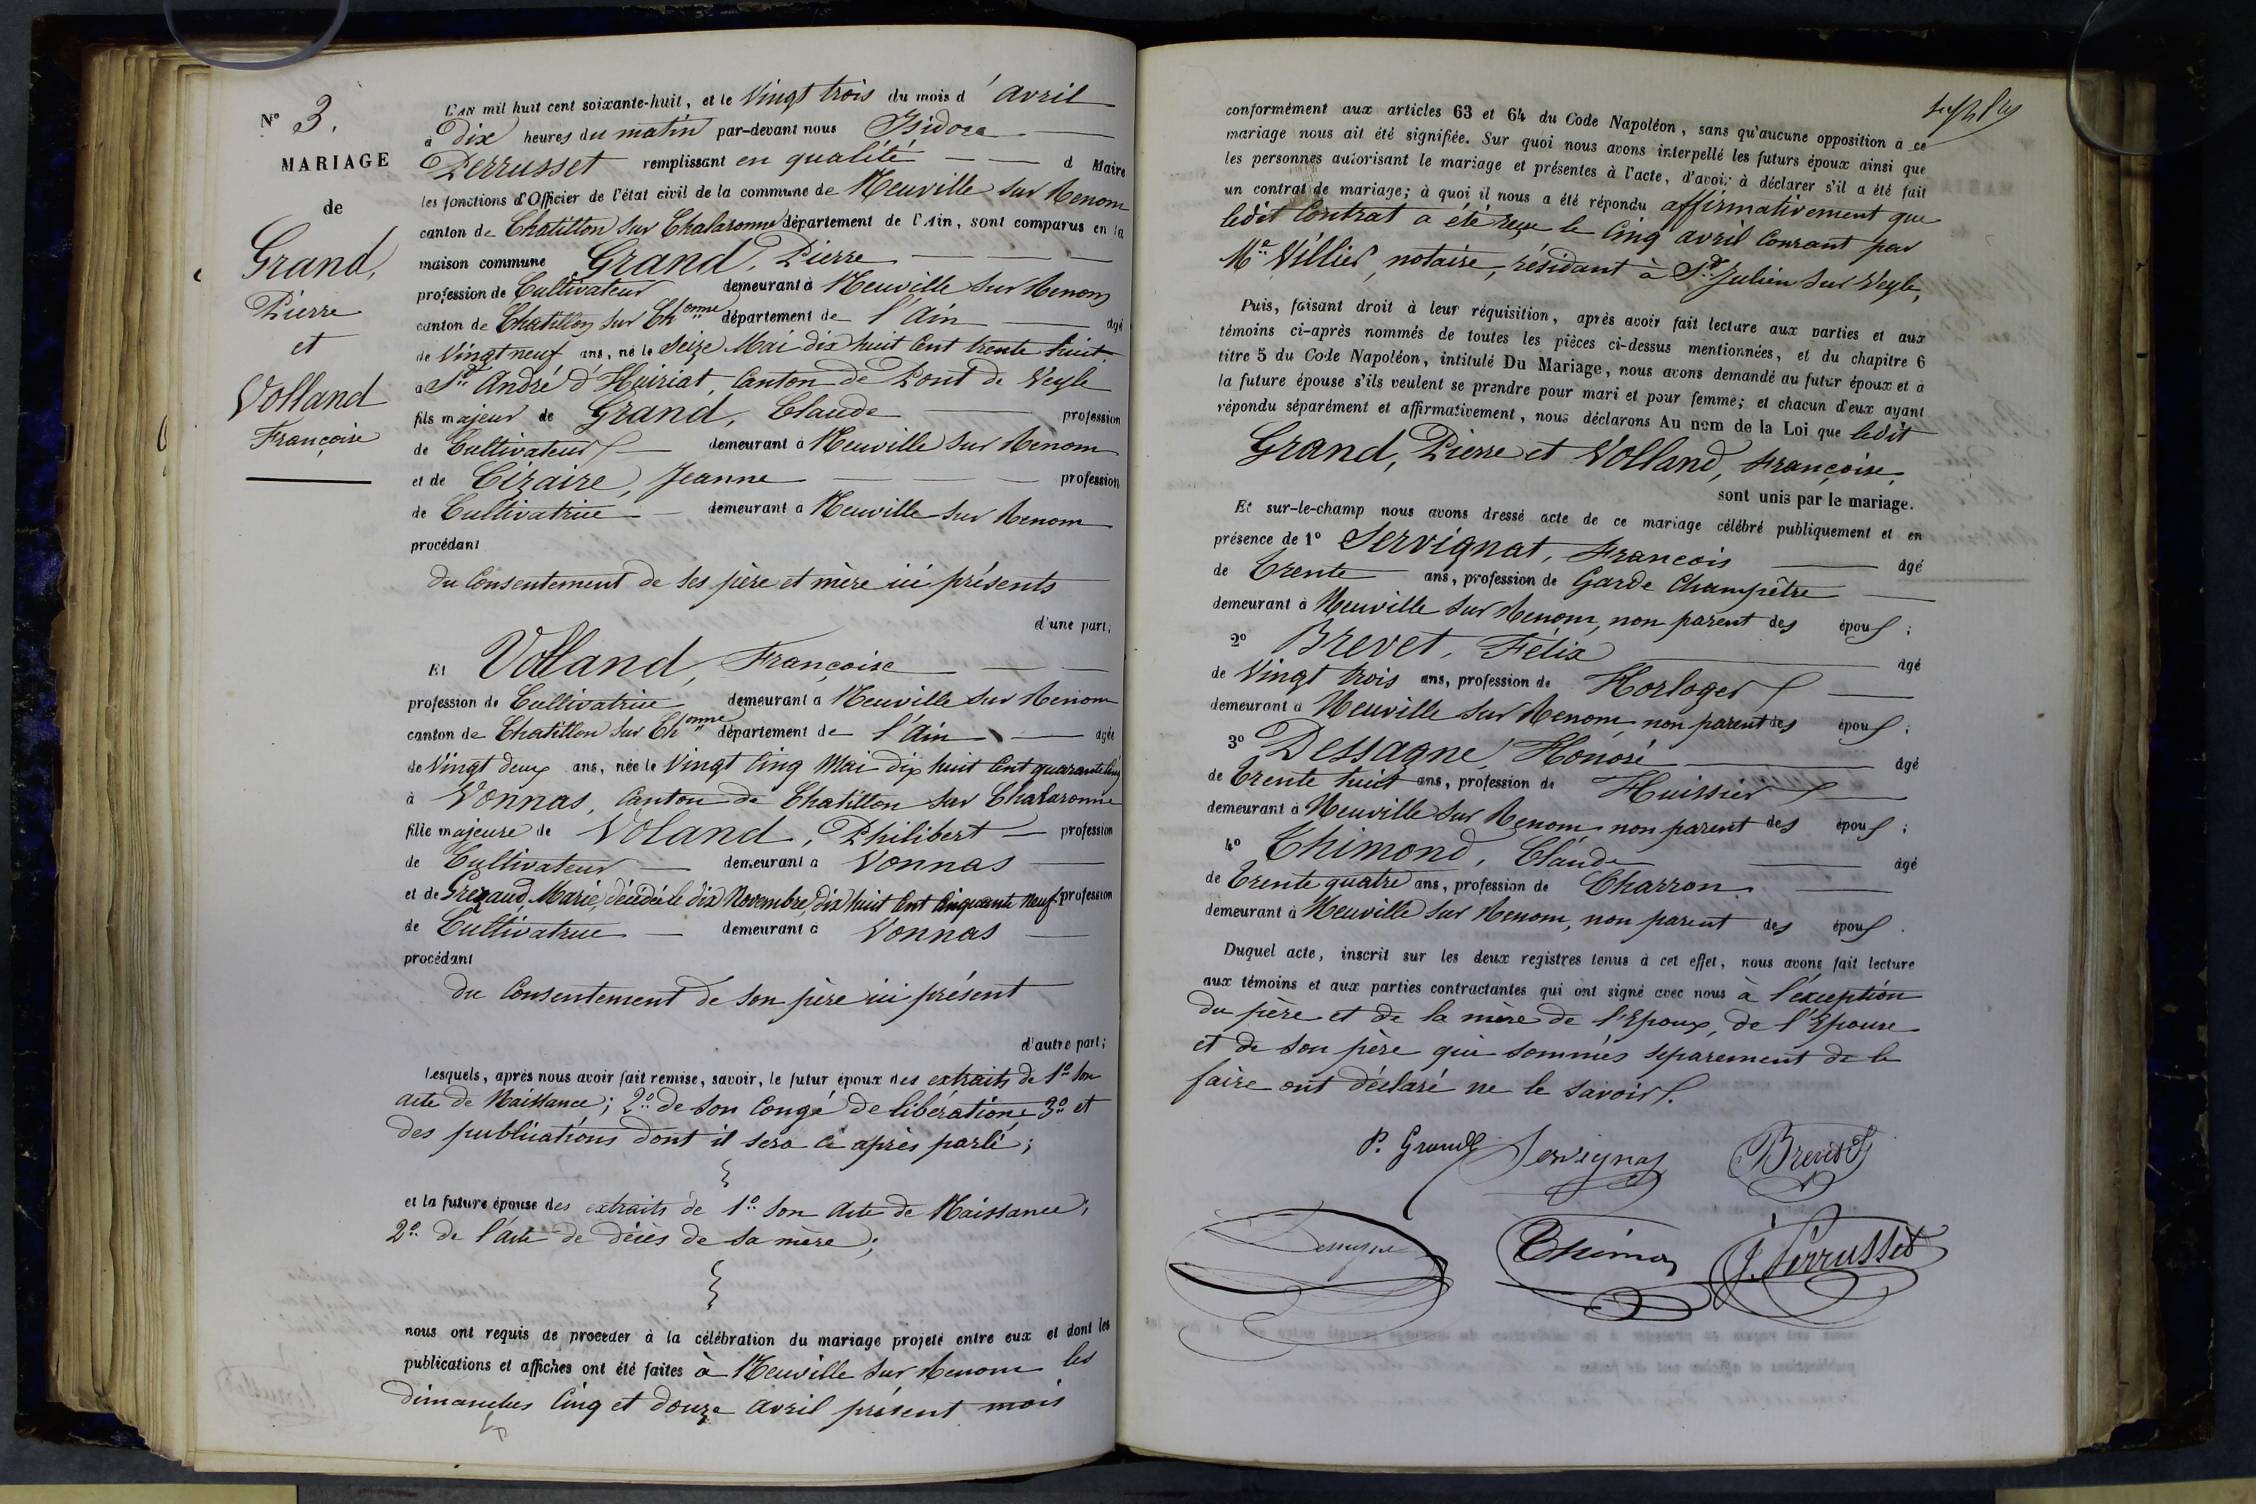 N° 3.
MARIAGE
de
Grand,
Pierre
et
Volland
Françoise
L'AN mil huit cent soixante-huit, et le Vingt trois du mois d'avril
à Dix heures du matin par-devant nous Isidore
Perrusset remplissant en qualité d Maire
les fonctions d'Officier de l'état civil de la commune de Neuville sur Renom
canton de Chatillon sur Chalaronne département de l'Ain, sont comparus en la
maison commune Grand, Pierre
profession de Cultivateur demeurant à Neuville sur Renom
canton de Chatillon sur Chonne département de l'Ain âgé
de Vingt neuf ans, né le Seize Mai dix huit Cent trente huit
à St André d'Huiriat, Canton de Pont de Veyle
fils majeur de Grand, Claude profession
de Cultivateur demeurant à Neuville sur Renom
et de Cizaire, Jeanne profession
de Cultivatrice demeurant à Neuville sur Renom
procédant
du Consentement de ses père et mère ici présents
d'une part;
Et Volland, Françoise
profession de Cultivatrice demeurant à Neuville sur Renom
canton de Chatillon sur Chonne département de l'Ain agée
de Vingt deux ans, née le Vingt Cinq Mai dix huit Cent quarante Cinq
à Vonnas, Canton de Chatillon sur Chalaronne
fille majeure de Voland, Philibert profession
de Cultivateur demeurant à Vonnas
et de Grégaud, Marie, décédée le dix Novembre dix huit Cent Cinquante Neuf profession
de Cultivatrice demeurant à Vonnas
procédant
du Consentement de son père ici présent
d'autre part;
Lesquels, après nous avoir fait remise, savoir, le futur époux des extraits de 1° son
acte de Naissance; 2° de son Congé de libération 3° et
des publications dont il sera ci après parlé;
et la future épouse des extraits de 1° son acte de Naissance,
2° de l'acte de décès de sa mère;
nous ont requis de procéder à la célébration du mariage projeté entre eux et dont les
publications et affiches ont été faites à Neuville sur Renom les
dimanches Cinq et douze avril présent mois
conformément aux articles 63 et 64 du Code Napoléon, sans qu'aucune opposition à ce
mariage nous ait été signifiée. Sur quoi nous avons interpellé les futurs époux ainsi que
les personnes autorisant le mariage et présentes à l'acte, d'avoir à déclarer s'il a été fait
un contrat de mariage; à quoi il nous a été répondu affirmativement que
ledit Contrat a été reçu le Cinq avril Courant par
Me Villier, notaire, résidant à St Julien sur Veyle,
Puis, faisant droit à leur réquisition, après avoir fait lecture aux parties et aux
témoins ci-après nommés de toutes les pièces ci-dessus mentionnées, et du chapitre 6
titre 5 du Code Napoléon, intitulé Du Mariage, nous avons demandé au futur époux et à
la future épouse s'ils veulent se prendre pour mari et pour femme; et chacun d'eux ayant
répondu séparément et affirmativement, nous déclarons Au nom de la Loi que ledit
Grand, Pierre et Volland, Françoise,
sont unis par le mariage.
Et sur-le-champ nous avons dressé acte de ce mariage célébré publiquement et en
présence de 1° Servignat, François âgé
de Trente ans, profession de Garde Champêtre
demeurant à Neuville sur Renom, non parent des époux;
2° Brevet, Félix âgé
de Vingt trois ans, profession de Horloger
demeurant à Neuville sur Renom non parent des époux;
3° Dessagne, Honoré âgé
de Trente huit ans, profession de Huissier
demeurant à Neuville sur Renom non parent des époux;
4° Thimond, Claude âgé
de Trente quatre ans, profession de Charron
demeurant à Neuville sur Renom, non parent des époux.
Duquel acte, inscrit sur les deux registres tenus à cet effet, nous avons fait lecture
aux témoins et aux parties contractantes qui ont signé avec nous à l'exception
du père et de la mère de l'Epoux, de l'Epouse
et de son père qui sommés séparement de le
faire ont déclaré ne le savoir.
P. Grand Servignat Brevet
Dessagne Thimon J. Perrusset